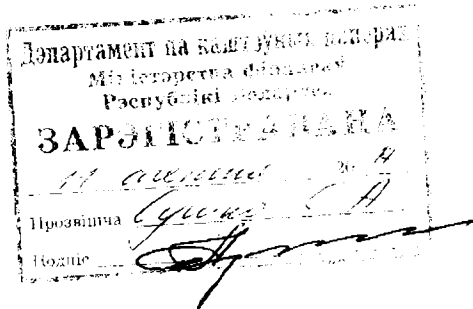 Дэпартамент па каштоўных паперах
Міністэрства фінансаў
Рэспублікі Беларусь
ЗАРЭГІСТРАВАНА
11
20
Прозвішча
Подпіс